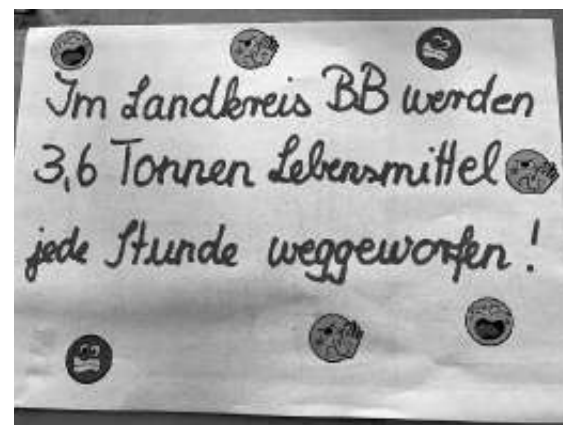 Im Landkreis BB werden
3,6 Tonnen Lebensmittel
jede Stunde weggeworfen!